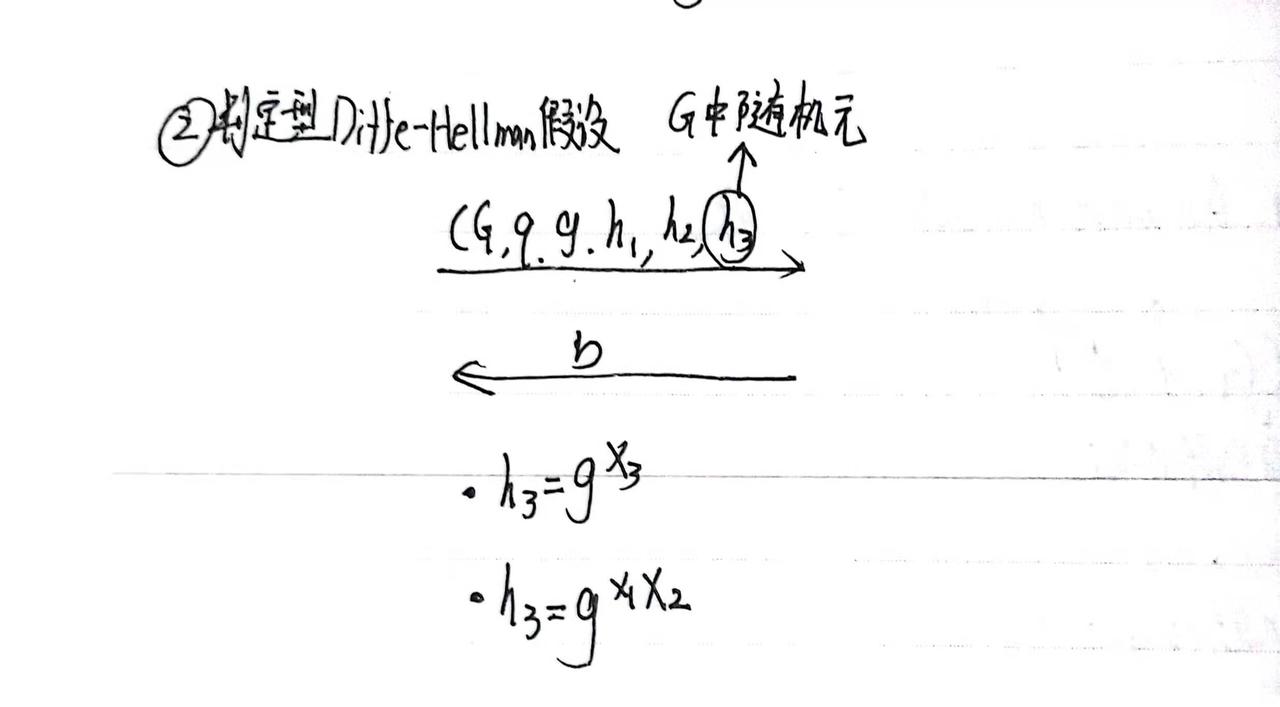 ②判定型Diffe-Hellman假设 G中随机元
(G,q.g.h₁,h₂,h₃
b
·h₃=g^x₃
·h₃=g^x₁x₂